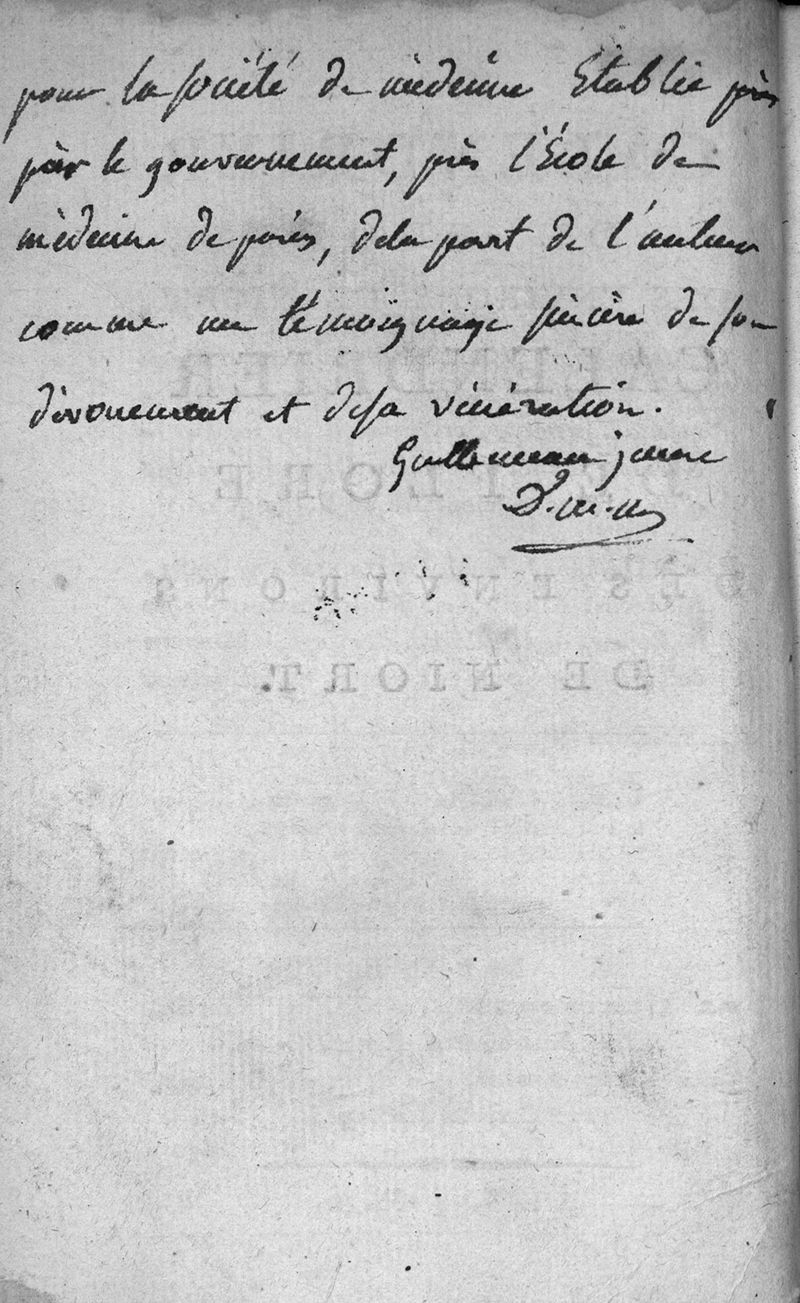 pour la société de médecine Etablie près
par le gouvernement, près l'École de
médecine de paris, dela part de l'auteur
comme un témoignage sincère de son
dévouement et desa vénération.
Guillemeau jeune
D. m. m.
CALENDRIER
DE FLORE
DES ENVIRONS
DE NIORT.